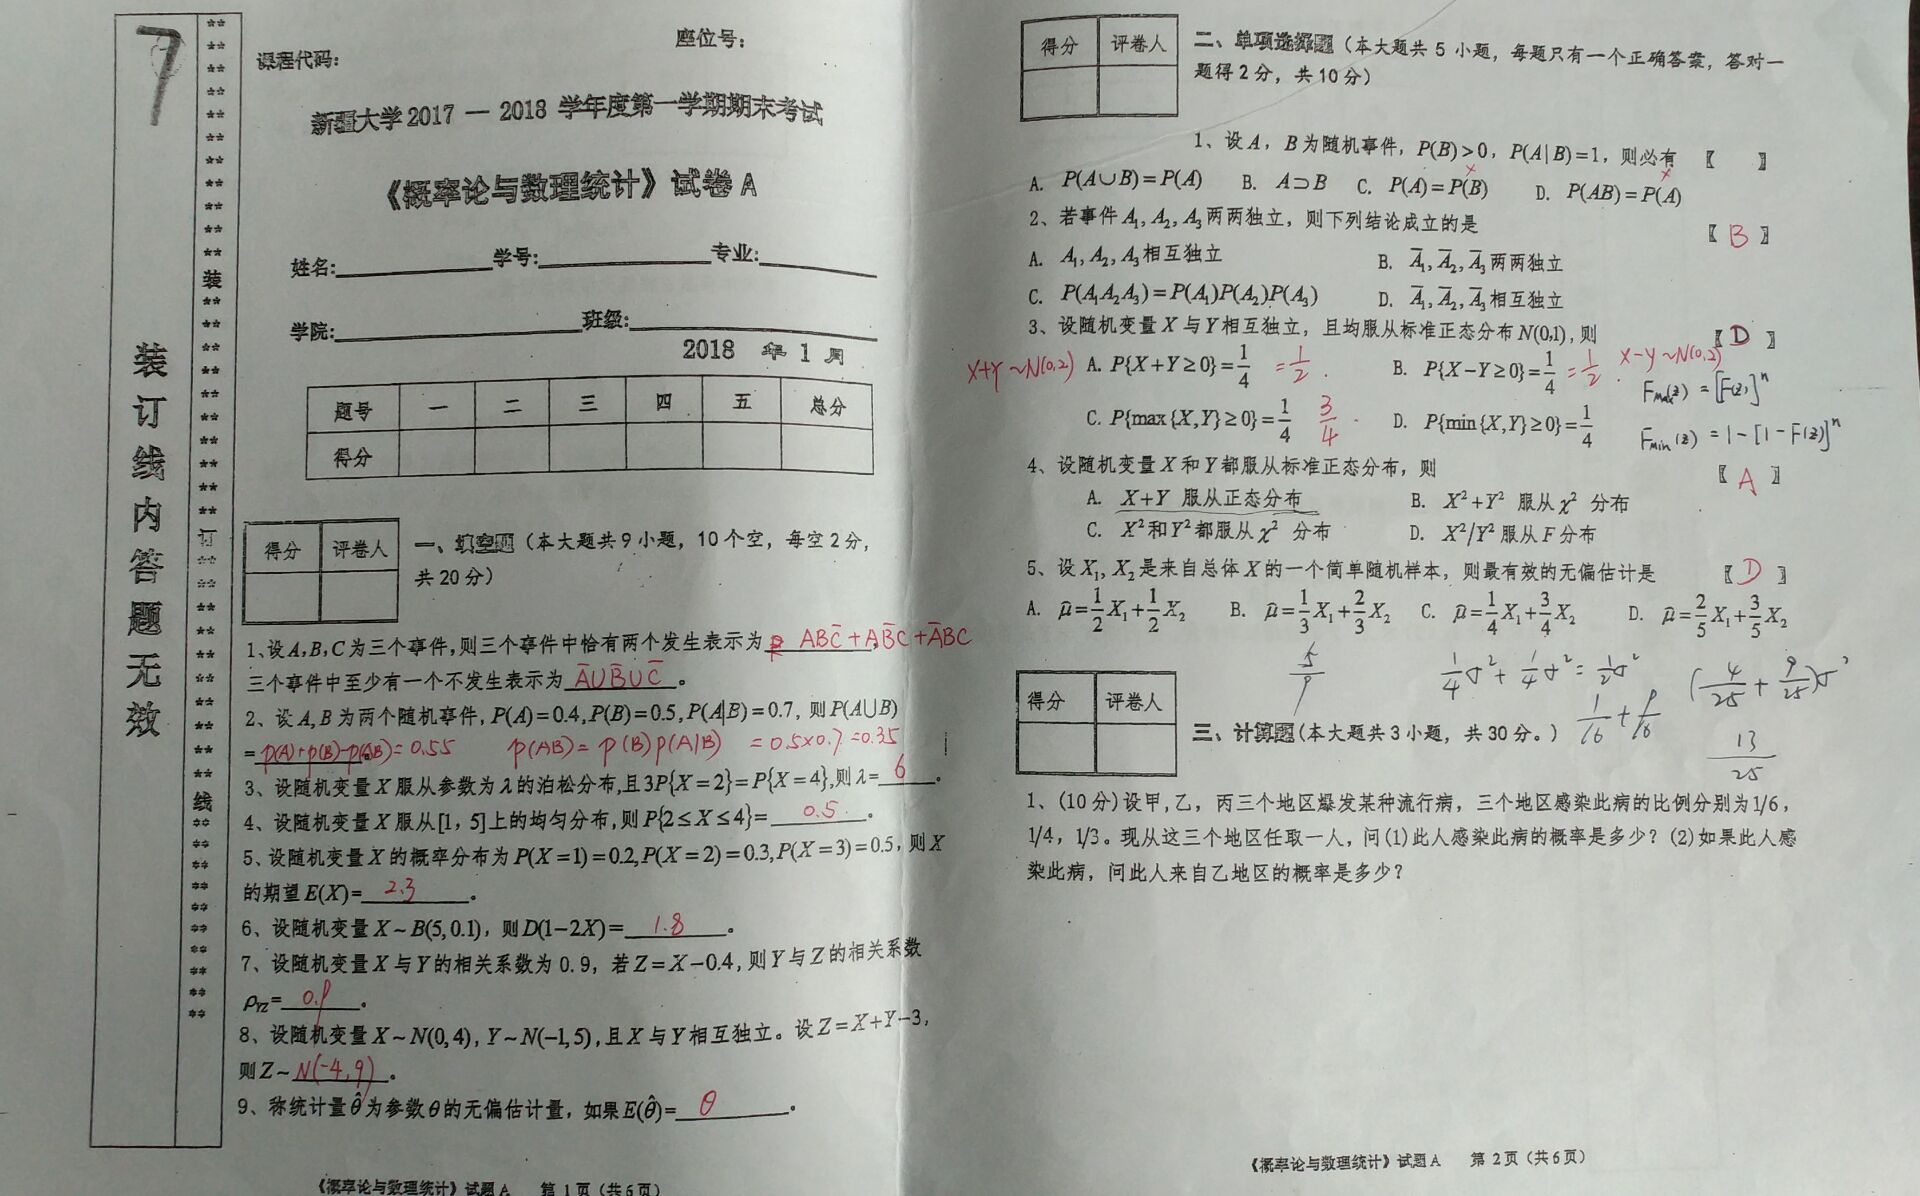 7
装订线内答题无效
装
订
线
课程代码:
座位号:
新疆大学2017 — 2018 学年度第一学期期末考试
《概率论与数理统计》试卷A
姓名: 学号: 专业:
学院: 班级:
2018 年 1 月
题号 一 二 三 四 五 总分
得分
得分 评卷人
一、填空题（本大题共9小题，10个空，每空2分，
共20分）
1、设A,B,C为三个事件,则三个事件中恰有两个发生表示为 ABC̄ + AB̄C + ĀBC ,
三个事件中至少有一个不发生表示为 Ā∪B̄∪C̄ 。
2、设A,B为两个随机事件,P(A)=0.4,P(B)=0.5,P(A|B)=0.7, 则P(A∪B)
= p(A)+p(B)-p(AB) = 0.55 p(AB) = p(B)p(A|B) = 0.5×0.7 =0.35
3、设随机变量X服从参数为λ的泊松分布,且3P{X=2}=P{X=4},则λ= 6 。
4、设随机变量X服从[1，5]上的均匀分布,则P{2≤X≤4}= 0.5 。
5、设随机变量X的概率分布为P(X=1)=0.2,P(X=2)=0.3,P(X=3)=0.5，则X
的期望E(X)= 2.3 。
6、设随机变量X~B(5,0.1)，则D(1-2X)= 1.8 。
7、设随机变量X与Y的相关系数为0.9，若Z=X-0.4,则Y与Z的相关系数
ρYZ= 0.9 。
8、设随机变量X~N(0,4), Y~N(-1,5),且X与Y相互独立。设Z=X+Y-3,
则Z~ N(-4,9) 。
9、称统计量θ̂为参数θ的无偏估计量，如果E(θ̂)= θ 。
《概率论与数理统计》试题A 第1页（共6页）
得分 评卷人
二、单项选择题（本大题共5小题，每题只有一个正确答案，答对一
题得2分，共10分）
1、设A，B为随机事件，P(B)>0，P(A|B)=1，则必有 【 】
A. P(A∪B)=P(A) B. A⊃B C. P(A)=P(B) × D. P(AB)=P(A) ×
2、若事件A₁,A₂,A₃两两独立，则下列结论成立的是 【 B 】
A. A₁,A₂,A₃相互独立 B. Ā₁,Ā₂,Ā₃两两独立
C. P(A₁A₂A₃)=P(A₁)P(A₂)P(A₃) D. Ā₁,Ā₂,Ā₃相互独立
3、设随机变量X与Y相互独立，且均服从标准正态分布N(0,1),则 【 D 】
X+Y ~N(0,2) A. P{X+Y≥0}=1/4 = 1/2 . B. P{X-Y≥0}=1/4 = 1/2 . X-Y ~N(0,2)
Fmax(z) = [F(z)]ⁿ
C. P{max{X,Y}≥0}=1/4 3/4 . D. P{min{X,Y}≥0}=1/4 Fmin(z) = 1-[1-F(z)]ⁿ
4、设随机变量X和Y都服从标准正态分布，则 【 A 】
A. X+Y 服从正态分布 B. X²+Y² 服从χ² 分布
C. X²和Y²都服从χ² 分布 D. X²/Y²服从F分布
5、设X₁, X₂是来自总体X的一个简单随机样本，则最有效的无偏估计是 【 D 】
A. μ̂=1/2X₁+1/2X₂ B. μ̂=1/3X₁+2/3X₂ C. μ̂=1/4X₁+3/4X₂ D. μ̂=2/5X₁+3/5X₂
5/9 1/4σ²+1/4σ²=1/2σ² 1/16+9/16 (4/25+9/25)σ²
13/25
得分 评卷人
三、计算题(本大题共3小题，共30分。)
1、(10分)设甲,乙，丙三个地区爆发某种流行病，三个地区感染此病的比例分别为1/6，
1/4，1/3。现从这三个地区任取一人，问(1)此人感染此病的概率是多少？(2)如果此人感
染此病，问此人来自乙地区的概率是多少？
《概率论与数理统计》试题A 第2页（共6页）